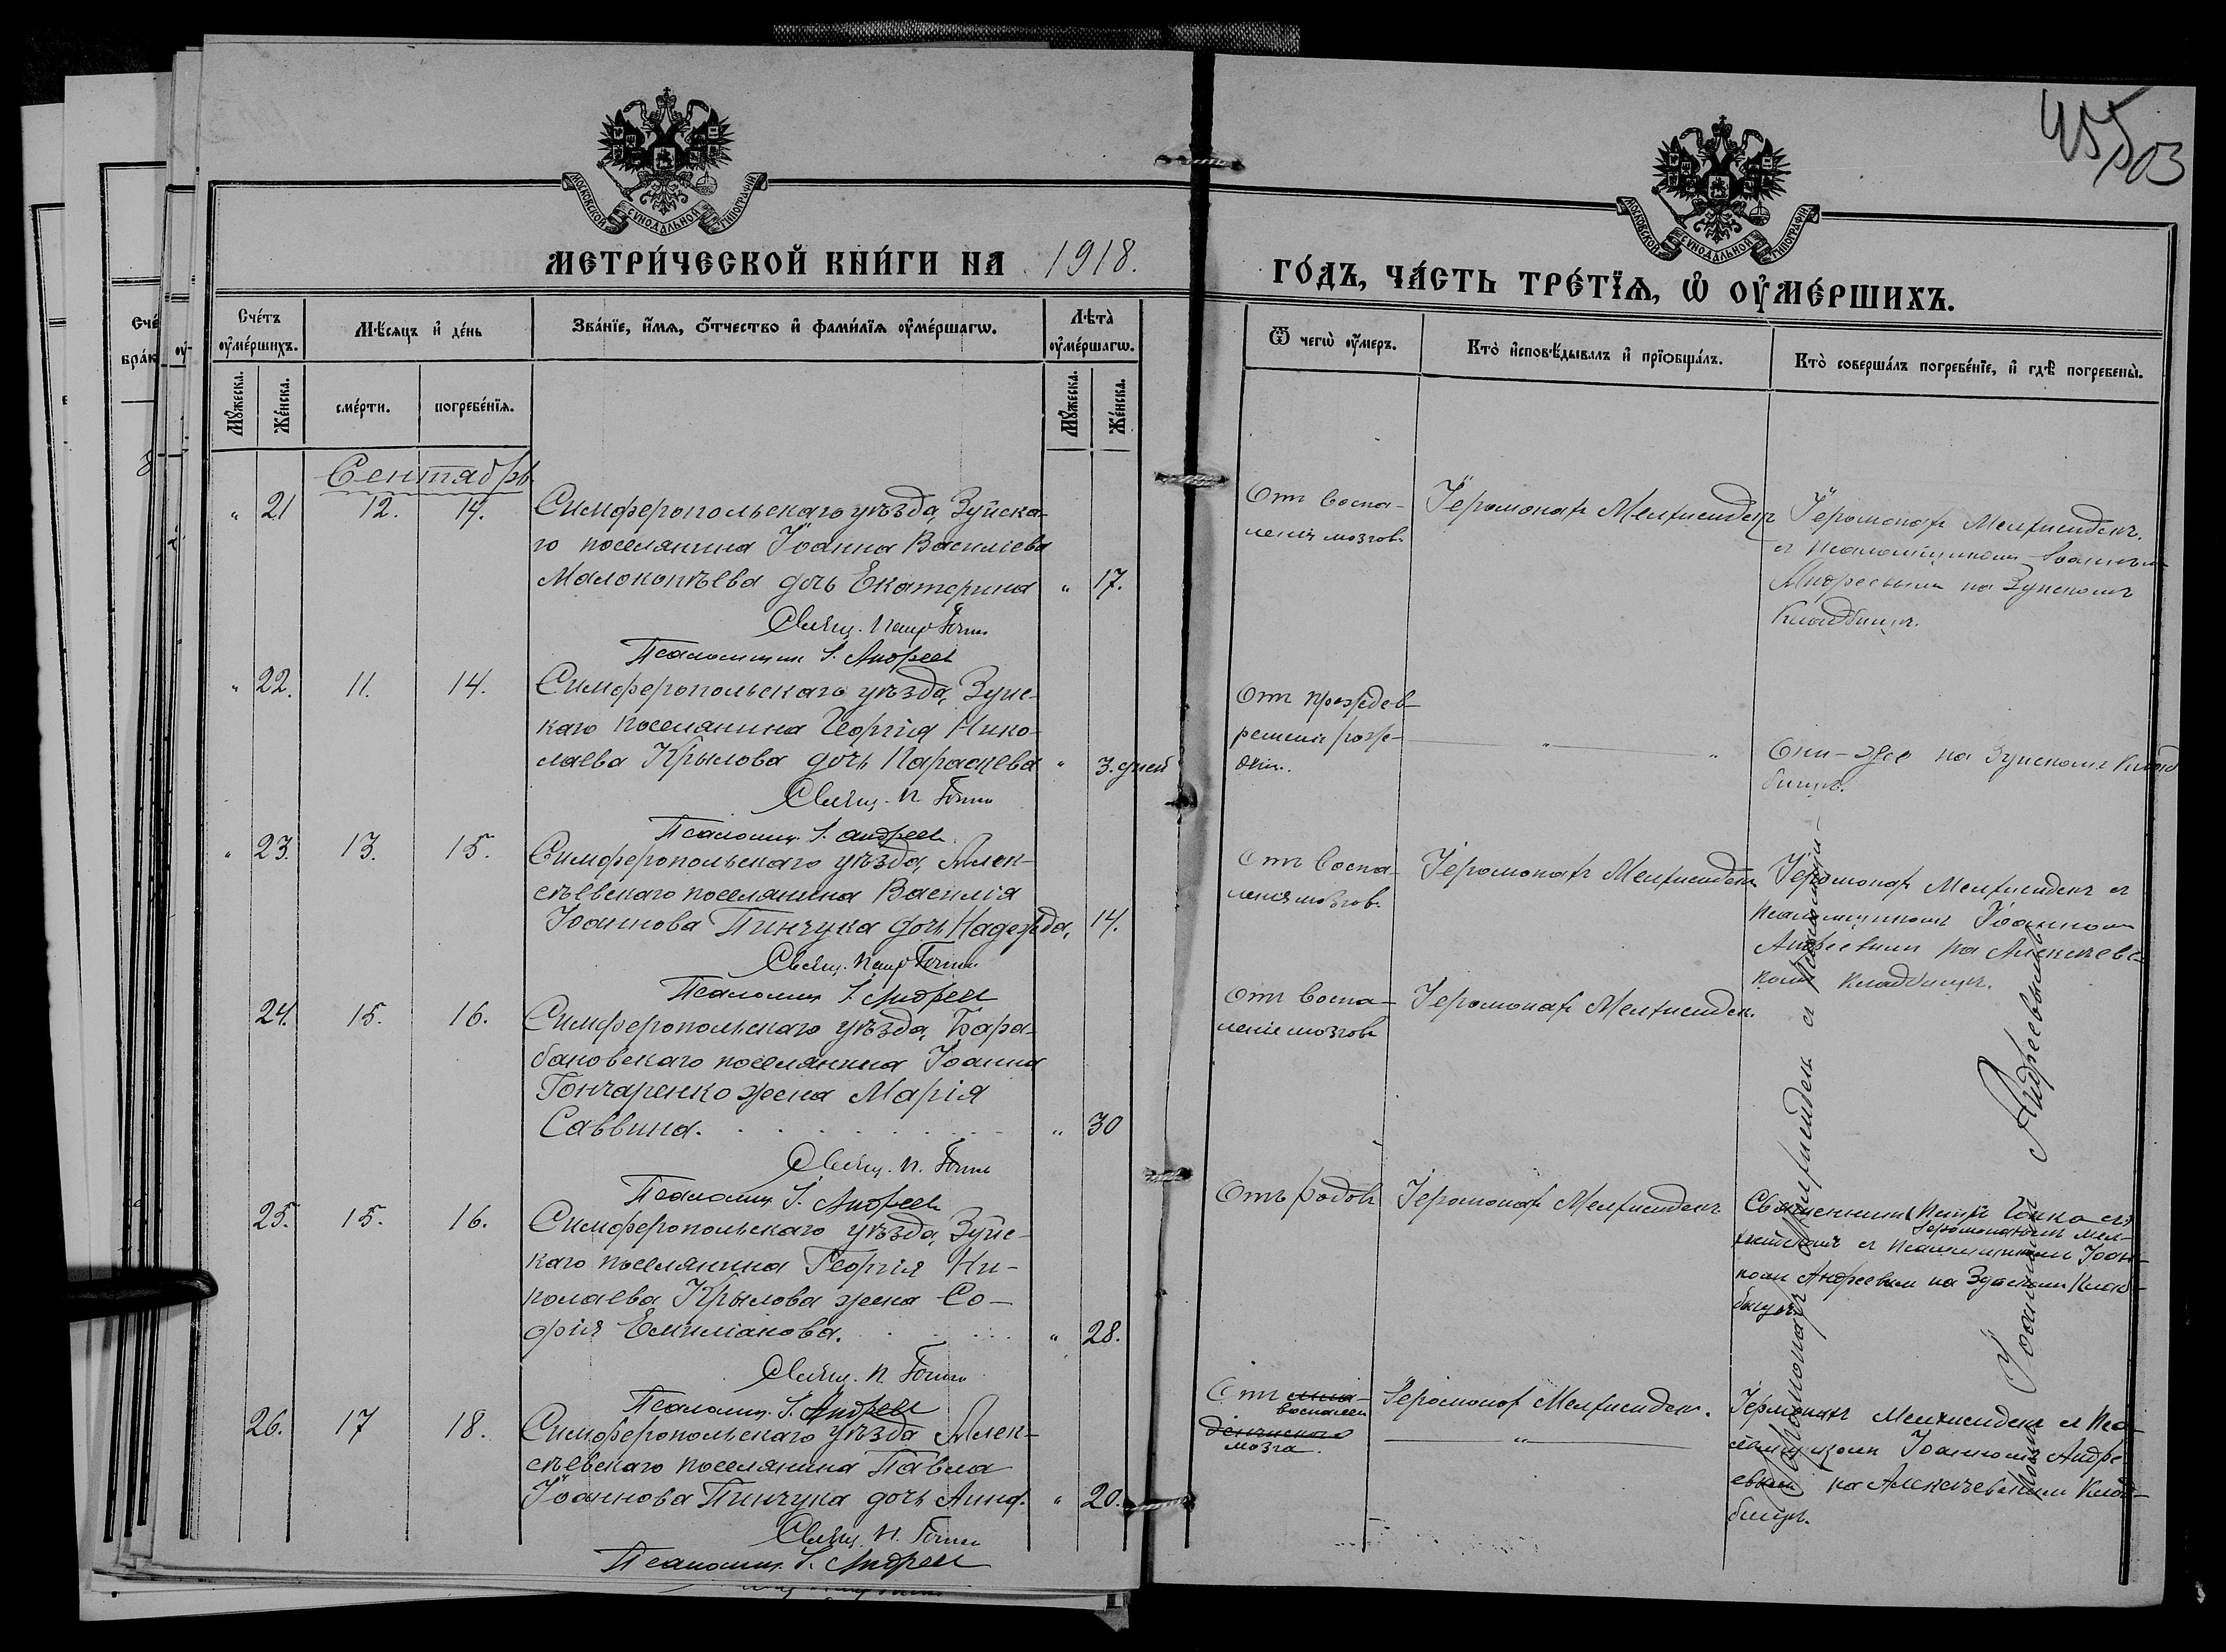 455
503
МОСКОВСКОЙ СѴНОДАЛЬНОЙ ТИПОГРАФІИ
МОСКОВСКОЙ СѴНОДАЛЬНОЙ ТИПОГРАФІИ
МЕТРИ́ЧЕСКОЙ КНИ́ГИ НА 1918.
ГО́ДЪ, ЧА́СТЬ ТРЕ́ТЇѦ, Ѽ ОУ҆МЕ́РШИХЪ.
Сче́тъ оу҆ме́ршихъ.
Мѣ́сяцъ и҆ де́нь
Зва́нїе, и҆́мѧ, ѻ҆́тчество и҆ фами́лїѧ оу҆ме́ршагѡ.
Лѣта̀ оу҆ме́ршагѡ.
Ѿ чегѡ̀ оу҆́меръ.
Кто̀ и҆сповѣ́дывалъ и҆ прїѻбща́лъ.
Кто̀ соверша́лъ погребе́нїе, и҆ гдѣ̀ погребены̀.
Мꙋ́жеска.
Же́нска.
сме́рти.
погребе́нїѧ.
Мꙋ́жеска.
Же́нска.
Сентябрь
" 21 12. 14. Симферопольскаго уѣзда, Зуйска-
го поселянина Іоанна Василіева
Малокопѣева дочь Екатерина " 17.
Свящ. Петр
Псаломщик І. Андреев
Отъ воспа-
ленія мозгов.
Іеромонах Мелхиседек
Іеромонах Мелхиседек.
с Псаломщиком Іоанном
Андреевым на Зуйском
Кладбищѣ.
" 22. 11. 14. Симферопольскаго уѣзда, Зуйс-
каго поселянина Георгія Нико-
лаева Крылова дочь Параскева " 3. дней
Свящ. П.
Псаломщ. І. Андреев
Отъ преждев-
ременн рож-
денія.
" "
Они-же на Зуйском клад
бищѣ.
" 23. 13. 15. Симферопольскаго уѣзда, Алек-
сѣевскаго поселянина Василія
Іоаннова Пинчука дочь Надежда, 14.
Свящ. Петр
Псаломщ І. Андреев
Отъ воспа-
ленія мозгов.
Іеромонах Мелхиседек
Іеромонах Мелхиседек с
псаломщиком Іоанном
Андреевым на Алексѣевс-
ком кладбищѣ.
24. 15. 16. Симферопольскаго уѣзда, Бара-
бановскаго поселянина Іоанна
Гончаренко жена Марія
Саввина. " 30
Свящ. П.
Псаломщ І. Андреев
Отъ воспа-
леніе мозгов
Іеромонах Мелхиседек.
Іеромонах Мелхиседек с Псаломщи-
ком Іоанном Андреевымъ
25. 15. 16. Симферопольскаго уѣзда, Зуйс-
каго поселянина Георгія Ни-
колаева Крылова жена Со-
фія Емиліанова. " 28.
Свящ. П.
Псаломщ. І. Андреев
Отъ родов
Іеромонах Мелхиседек
Священник Петр с
Іеромонахом Мел-
хиседеком с Псаломщиком Іоан-
ном Андреевым на Зуйском Клад-
бищѣ
26. 17 18. Симферопольскаго уѣзда Алек-
сѣевскаго поселянина Павла
Іоаннова Пинчука дочь Анна. " 20.
Свящ. П.
Псаломщ. І. Андреев
Отъ
воспален
мозга.
Іеромонах Мелхиседек.
"
Іермонах Мелхиседек с Пса-
ломщиком Іоанном Андре
евым на Алексѣевском Клад-
бищѣ.